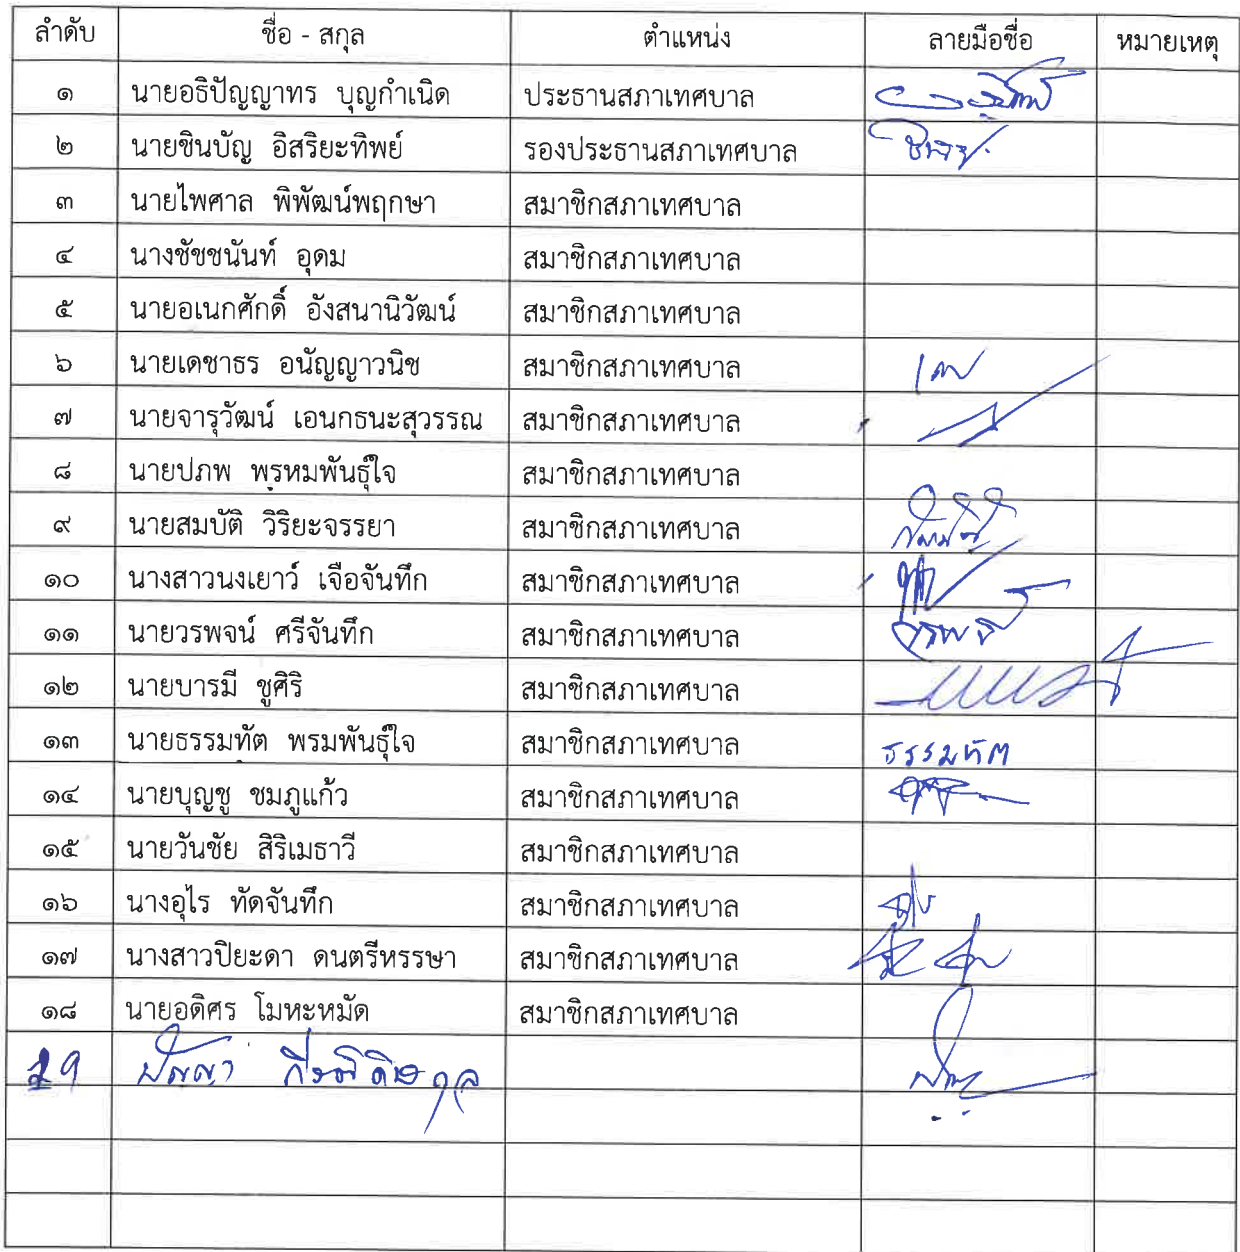 ลำดับ ชื่อ - สกุล ตำแหน่ง ลายมือชื่อ หมายเหตุ
๑ นายอธิปัญญาทร บุญกำเนิด ประธานสภาเทศบาล
๒ นายชินบัญ อิสริยะทิพย์ รองประธานสภาเทศบาล
๓ นายไพศาล พิพัฒน์พฤกษา สมาชิกสภาเทศบาล
๔ นางชัชชนันท์ อุดม สมาชิกสภาเทศบาล
๕ นายอเนกศักดิ์ อังสนานิวัฒน์ สมาชิกสภาเทศบาล
๖ นายเดชาธร อนัญญาวนิช สมาชิกสภาเทศบาล
๗ นายจารุวัฒน์ เอนกธนะสุวรรณ สมาชิกสภาเทศบาล
๘ นายปภพ พรหมพันธุ์ใจ สมาชิกสภาเทศบาล
๙ นายสมบัติ วิริยะจรรยา สมาชิกสภาเทศบาล
๑๐ นางสาวนงเยาว์ เจือจันทึก สมาชิกสภาเทศบาล
๑๑ นายวรพจน์ ศรีจันทึก สมาชิกสภาเทศบาล
๑๒ นายบารมี ชูศิริ สมาชิกสภาเทศบาล
๑๓ นายธรรมทัต พรมพันธุ์ใจ สมาชิกสภาเทศบาล ธรรมทัต
๑๔ นายบุญชู ชมภูแก้ว สมาชิกสภาเทศบาล
๑๕ นายวันชัย สิริเมธาวี สมาชิกสภาเทศบาล
๑๖ นางอุไร ทัดจันทึก สมาชิกสภาเทศบาล
๑๗ นางสาวปิยะดา ดนตรีหรรษา สมาชิกสภาเทศบาล
๑๘ นายอดิศร โมหะหมัด สมาชิกสภาเทศบาล
19 ปัญญา